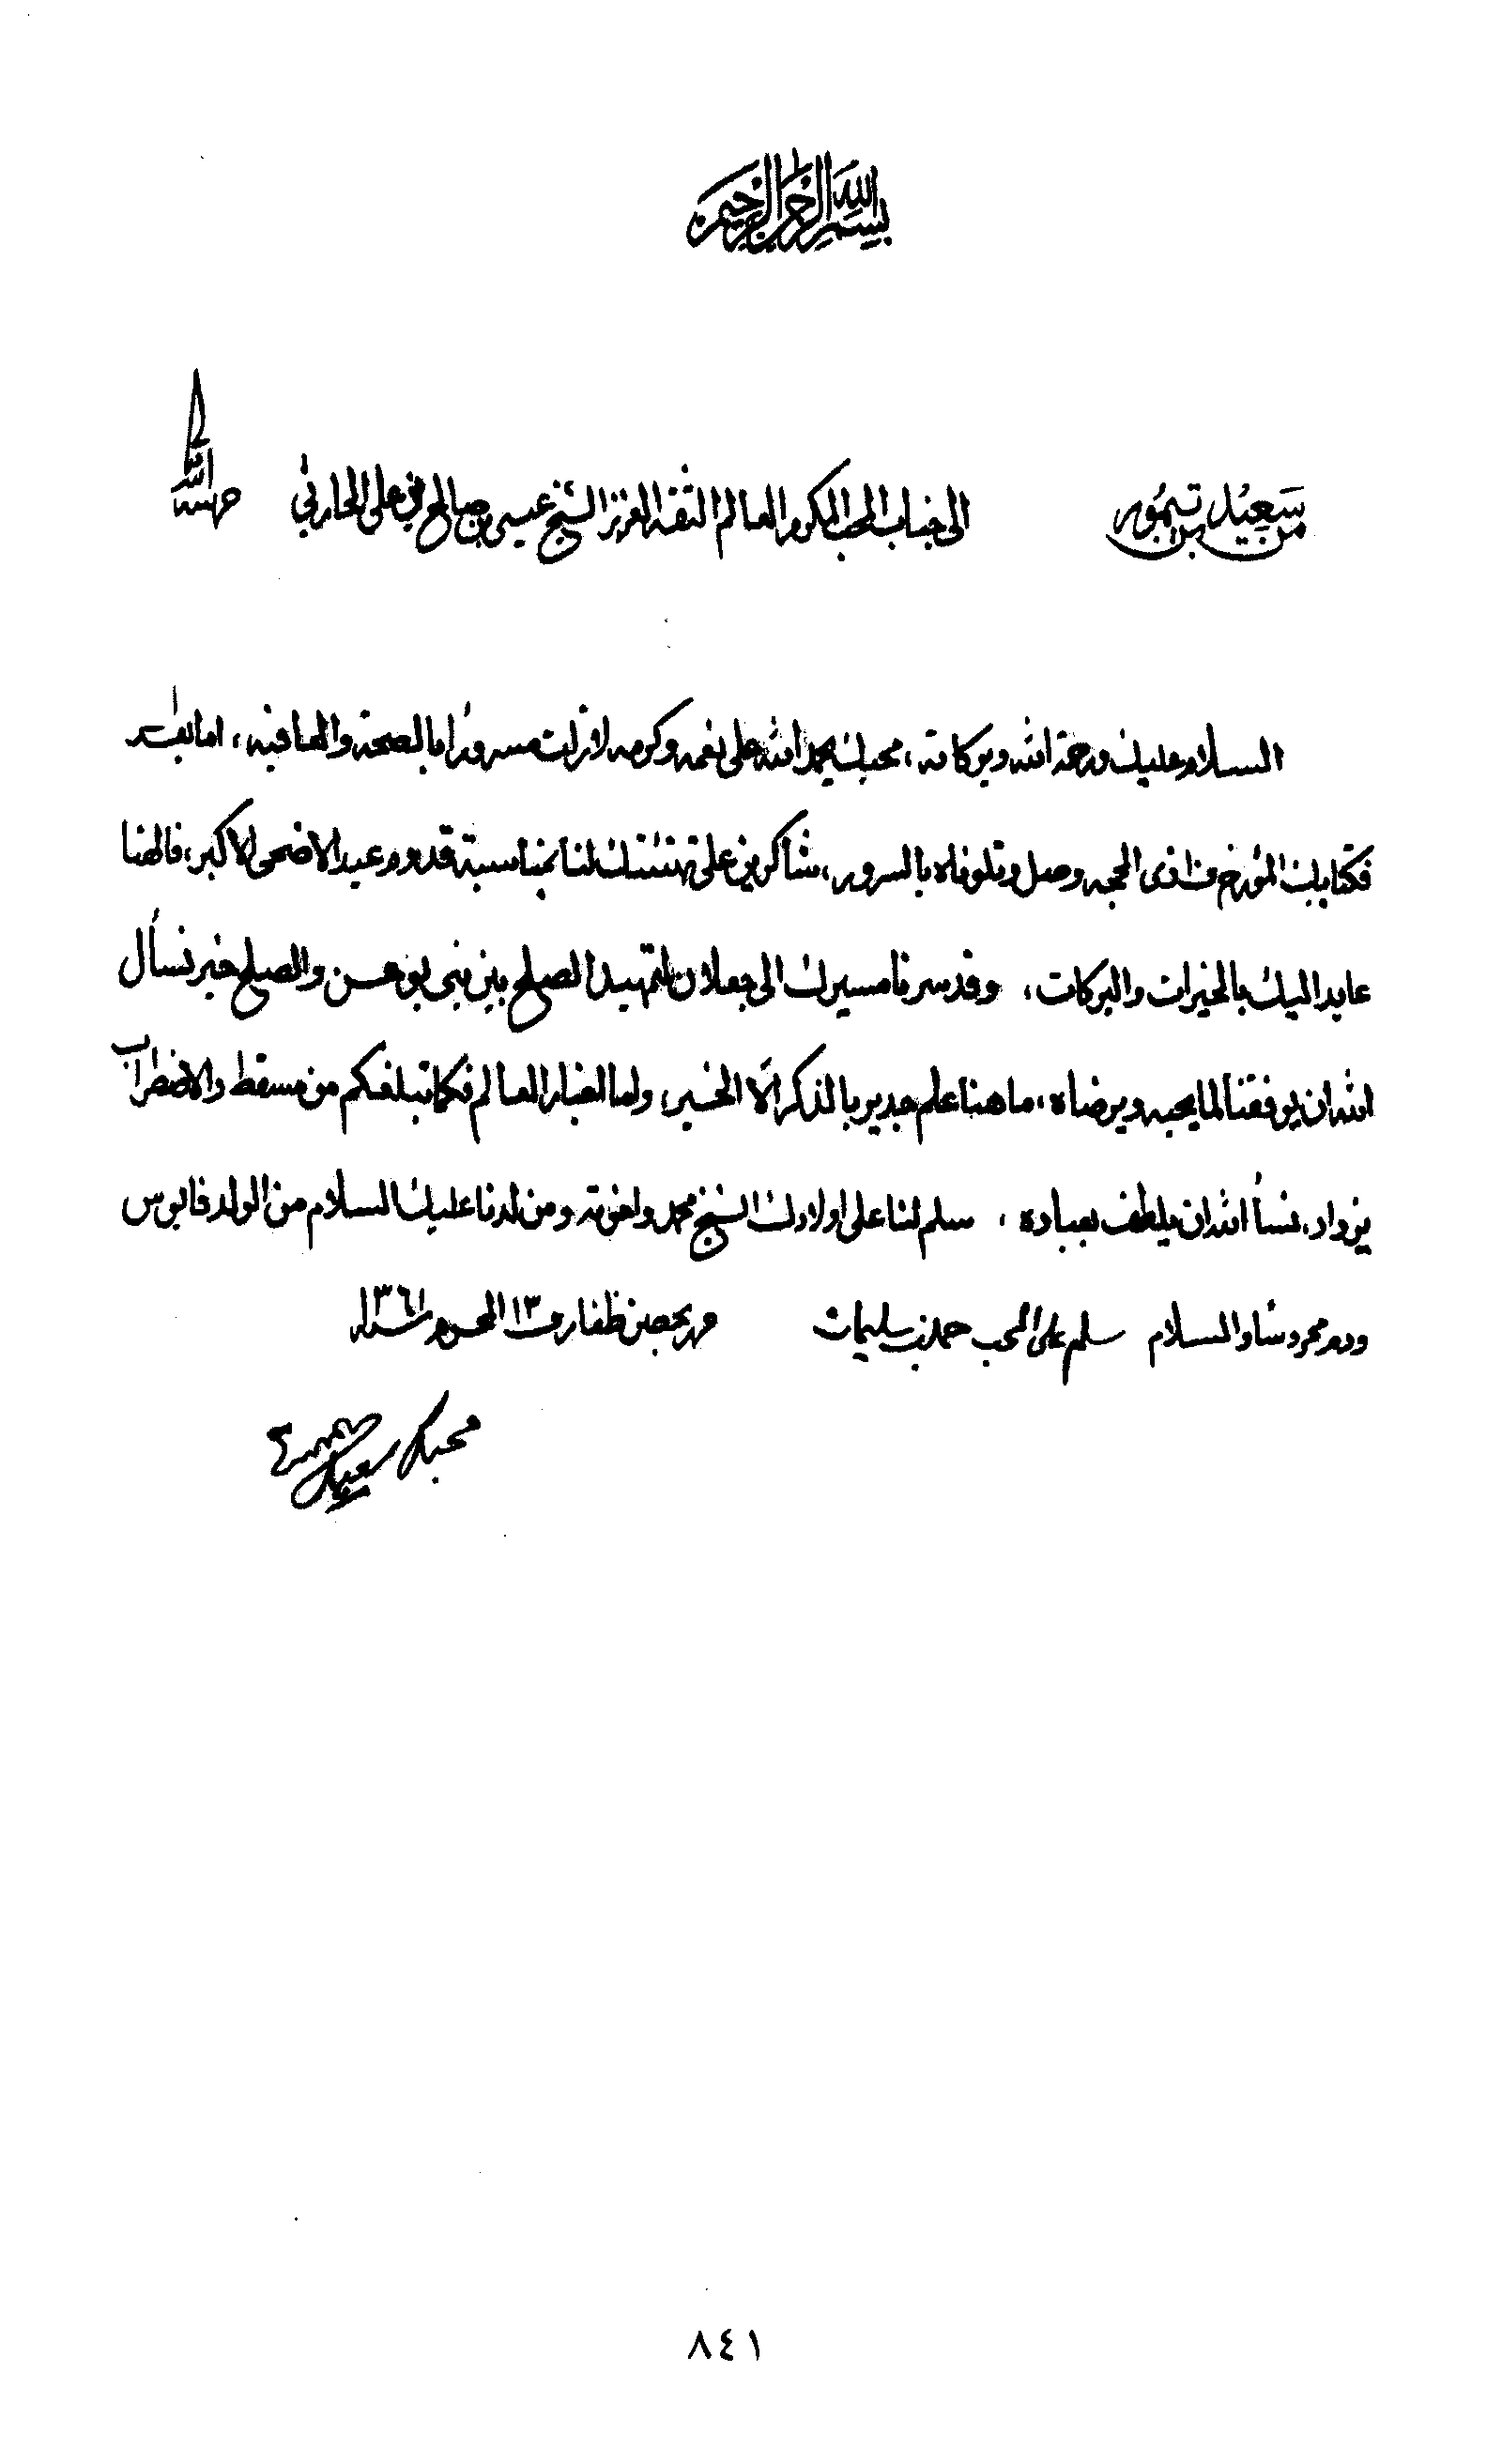 بسم الله الرحمن الرحيم
من سعيد بن تيمور الى جناب المحب المكرم العالم الثقة العزيز الشيخ عيسى بن صالح بن علي الحارثي حرسه الله
السلام عليك ورحمة الله وبركاته ، محبك يحمد الله على نعمه وكرمه لازلت مسرورًا بالصحة والعافيه ، اما بعد
فكتابك المؤرخ ذى الحجه وصل وتلوناه بالسرور ، شاكرين على تهنئتك لنا بمناسبة قدوم عيد الاضحى الاكبر ، فالهنا
عايد اليك بالخيرات والبركات ، وقد سرنا مسيرك الى جعلان لتمهيد الصلح بين بنى بو حسن والصلح خير نسأل
الله ان يوفقنا لما يحبه ويرضاه ، ما هنا علم جدير بالذكر الّا الخير ، واما اخبار العالم فكما تبلغكم من مسقط والاضطراب
يزداد ، نسأ الله ان يلطف بعباده ، سلم لنا على اولادك الشيخ محمد واخوته ومن لدنا عليك السلام من الولد قابوس
ودم محروسًا والسلام سلم على المحب حمد بن سليمان حرر بحصن ظفار ١٣ المحرم سنة ١٣٦١
محبك سعيد
٨٤١